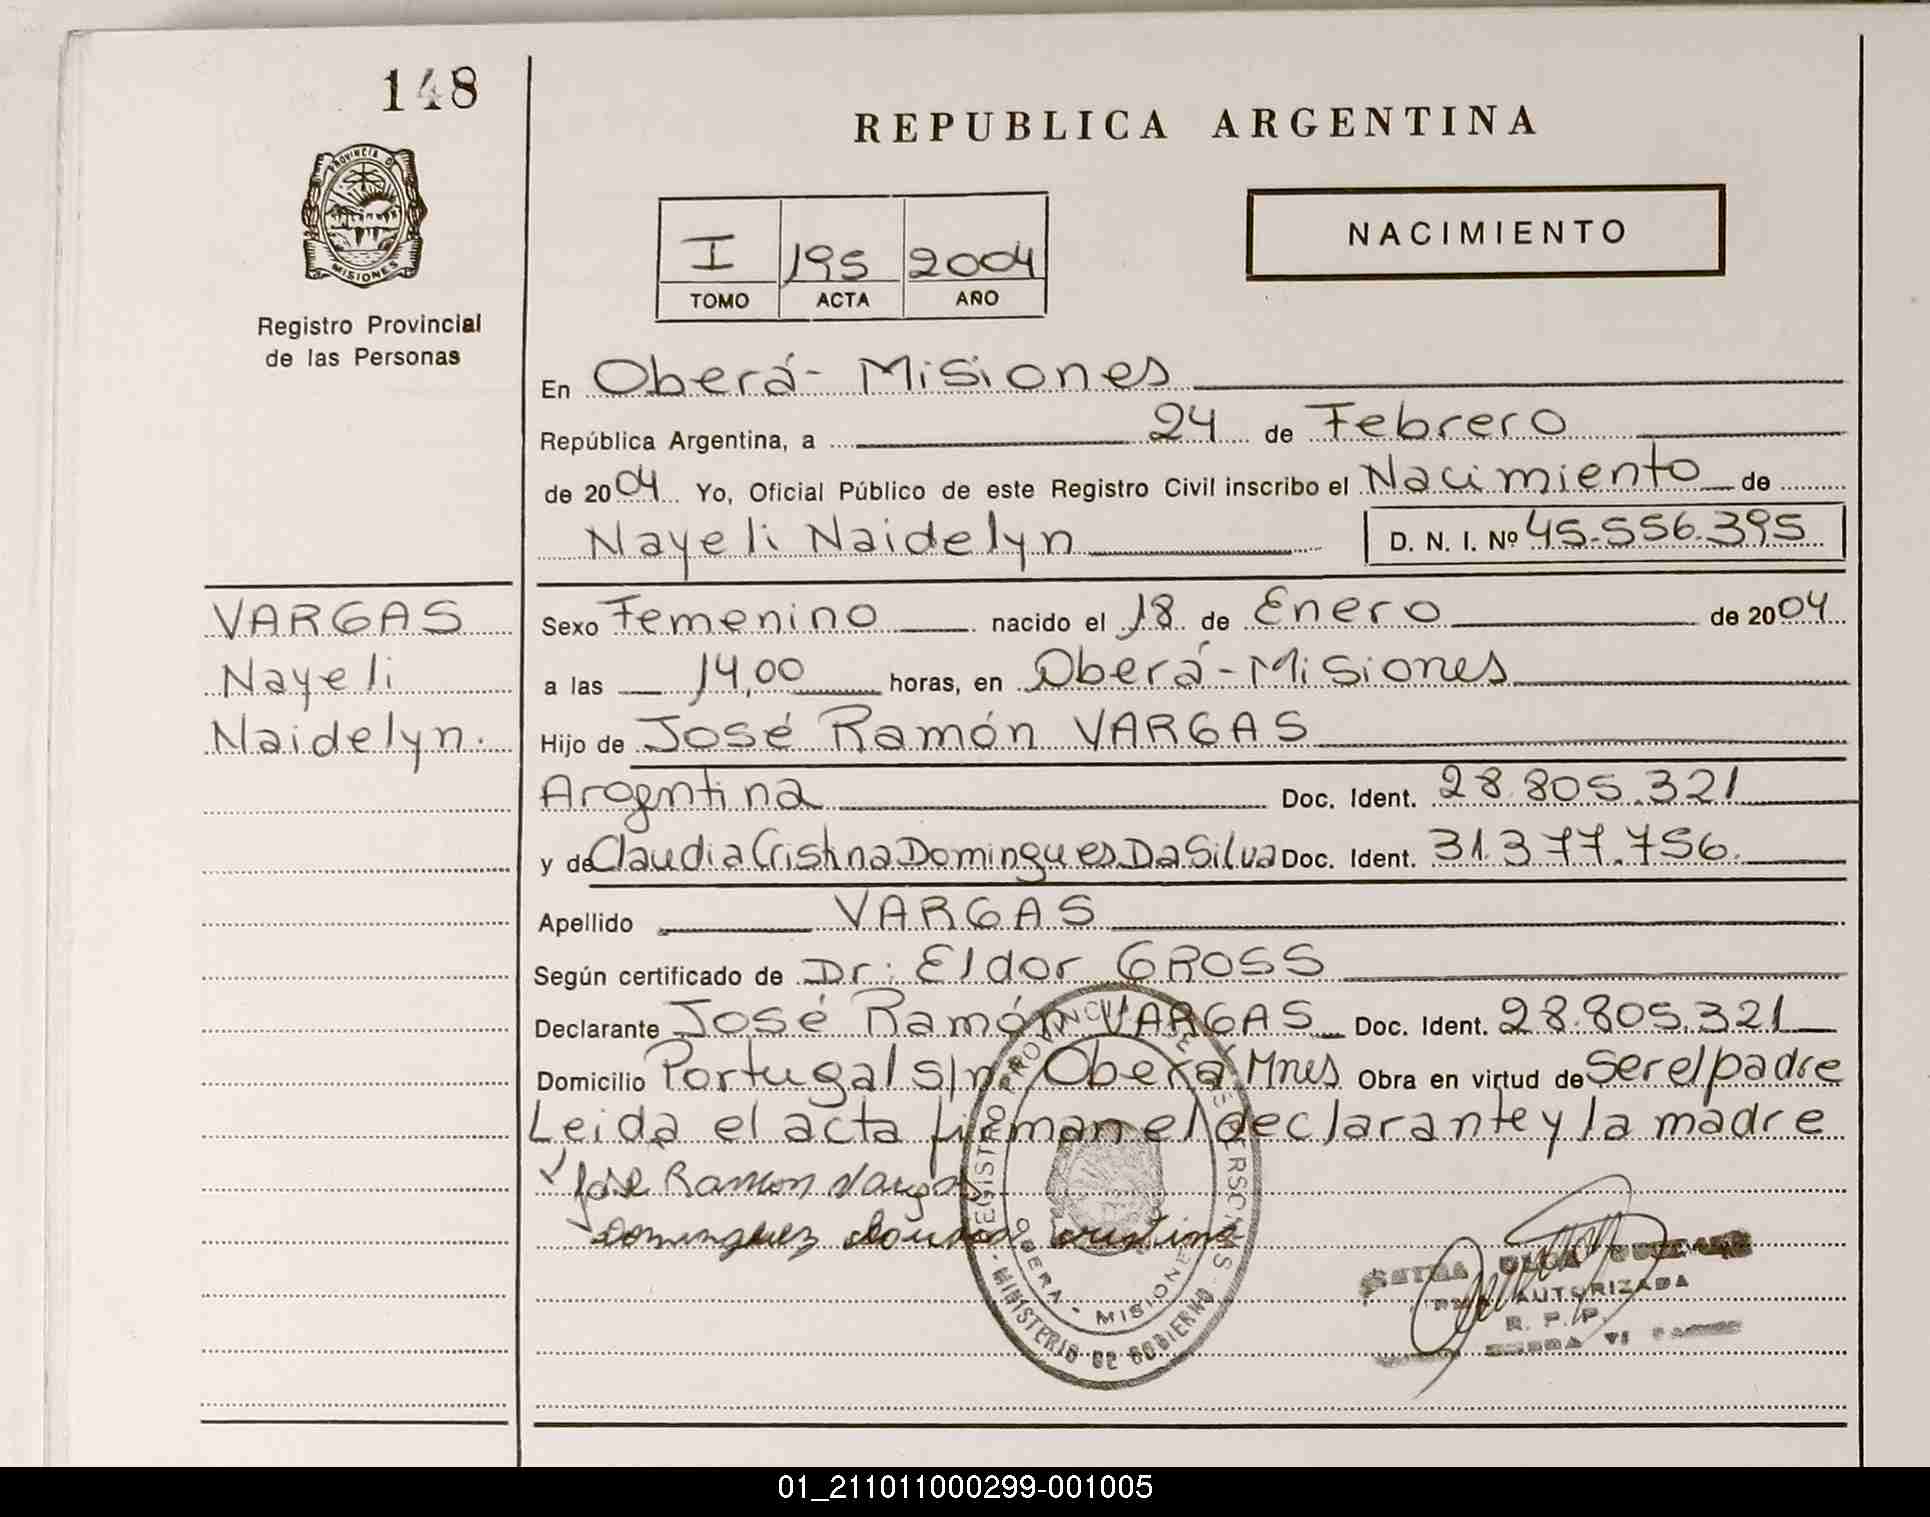 148
REPUBLICA ARGENTINA
PROVINCIA D
MISIONES
Registro Provincial
de las Personas
I 195 2004
TOMO ACTA AÑO
NACIMIENTO
En Oberá - Misiones
República Argentina, a 24 de Febrero
de 2004 Yo, Oficial Público de este Registro Civil inscribo el Nacimiento de
Nayeli Naidelyn D. N. I. Nº 45.556.395
VARGAS
Nayeli
Naidelyn.
Sexo Femenino nacido el 18 de Enero de 2004
a las 14,00 horas, en Oberá - Misiones
Hijo de José Ramón VARGAS
Argentina Doc. Ident. 28.805.321
y de Claudia Cristina Domingues Da Silva Doc. Ident. 31.377.756.
Apellido VARGAS
Según certificado de Dr. Eldor GROSS
Declarante José Ramón VARGAS Doc. Ident. 28.805.321
Domicilio Portugal s/n. Oberá Mnes Obra en virtud de ser el padre
Leida el acta firman el declarante y la madre
José Ramon Vargas
Dominguez cristina
REGISTRO PROVINCIAL DE
MINISTERIO DE GOBIERNO
OBERA - MISIONES
OLGA
AUTORIZADA
R. P. P.
01_211011000299-001005